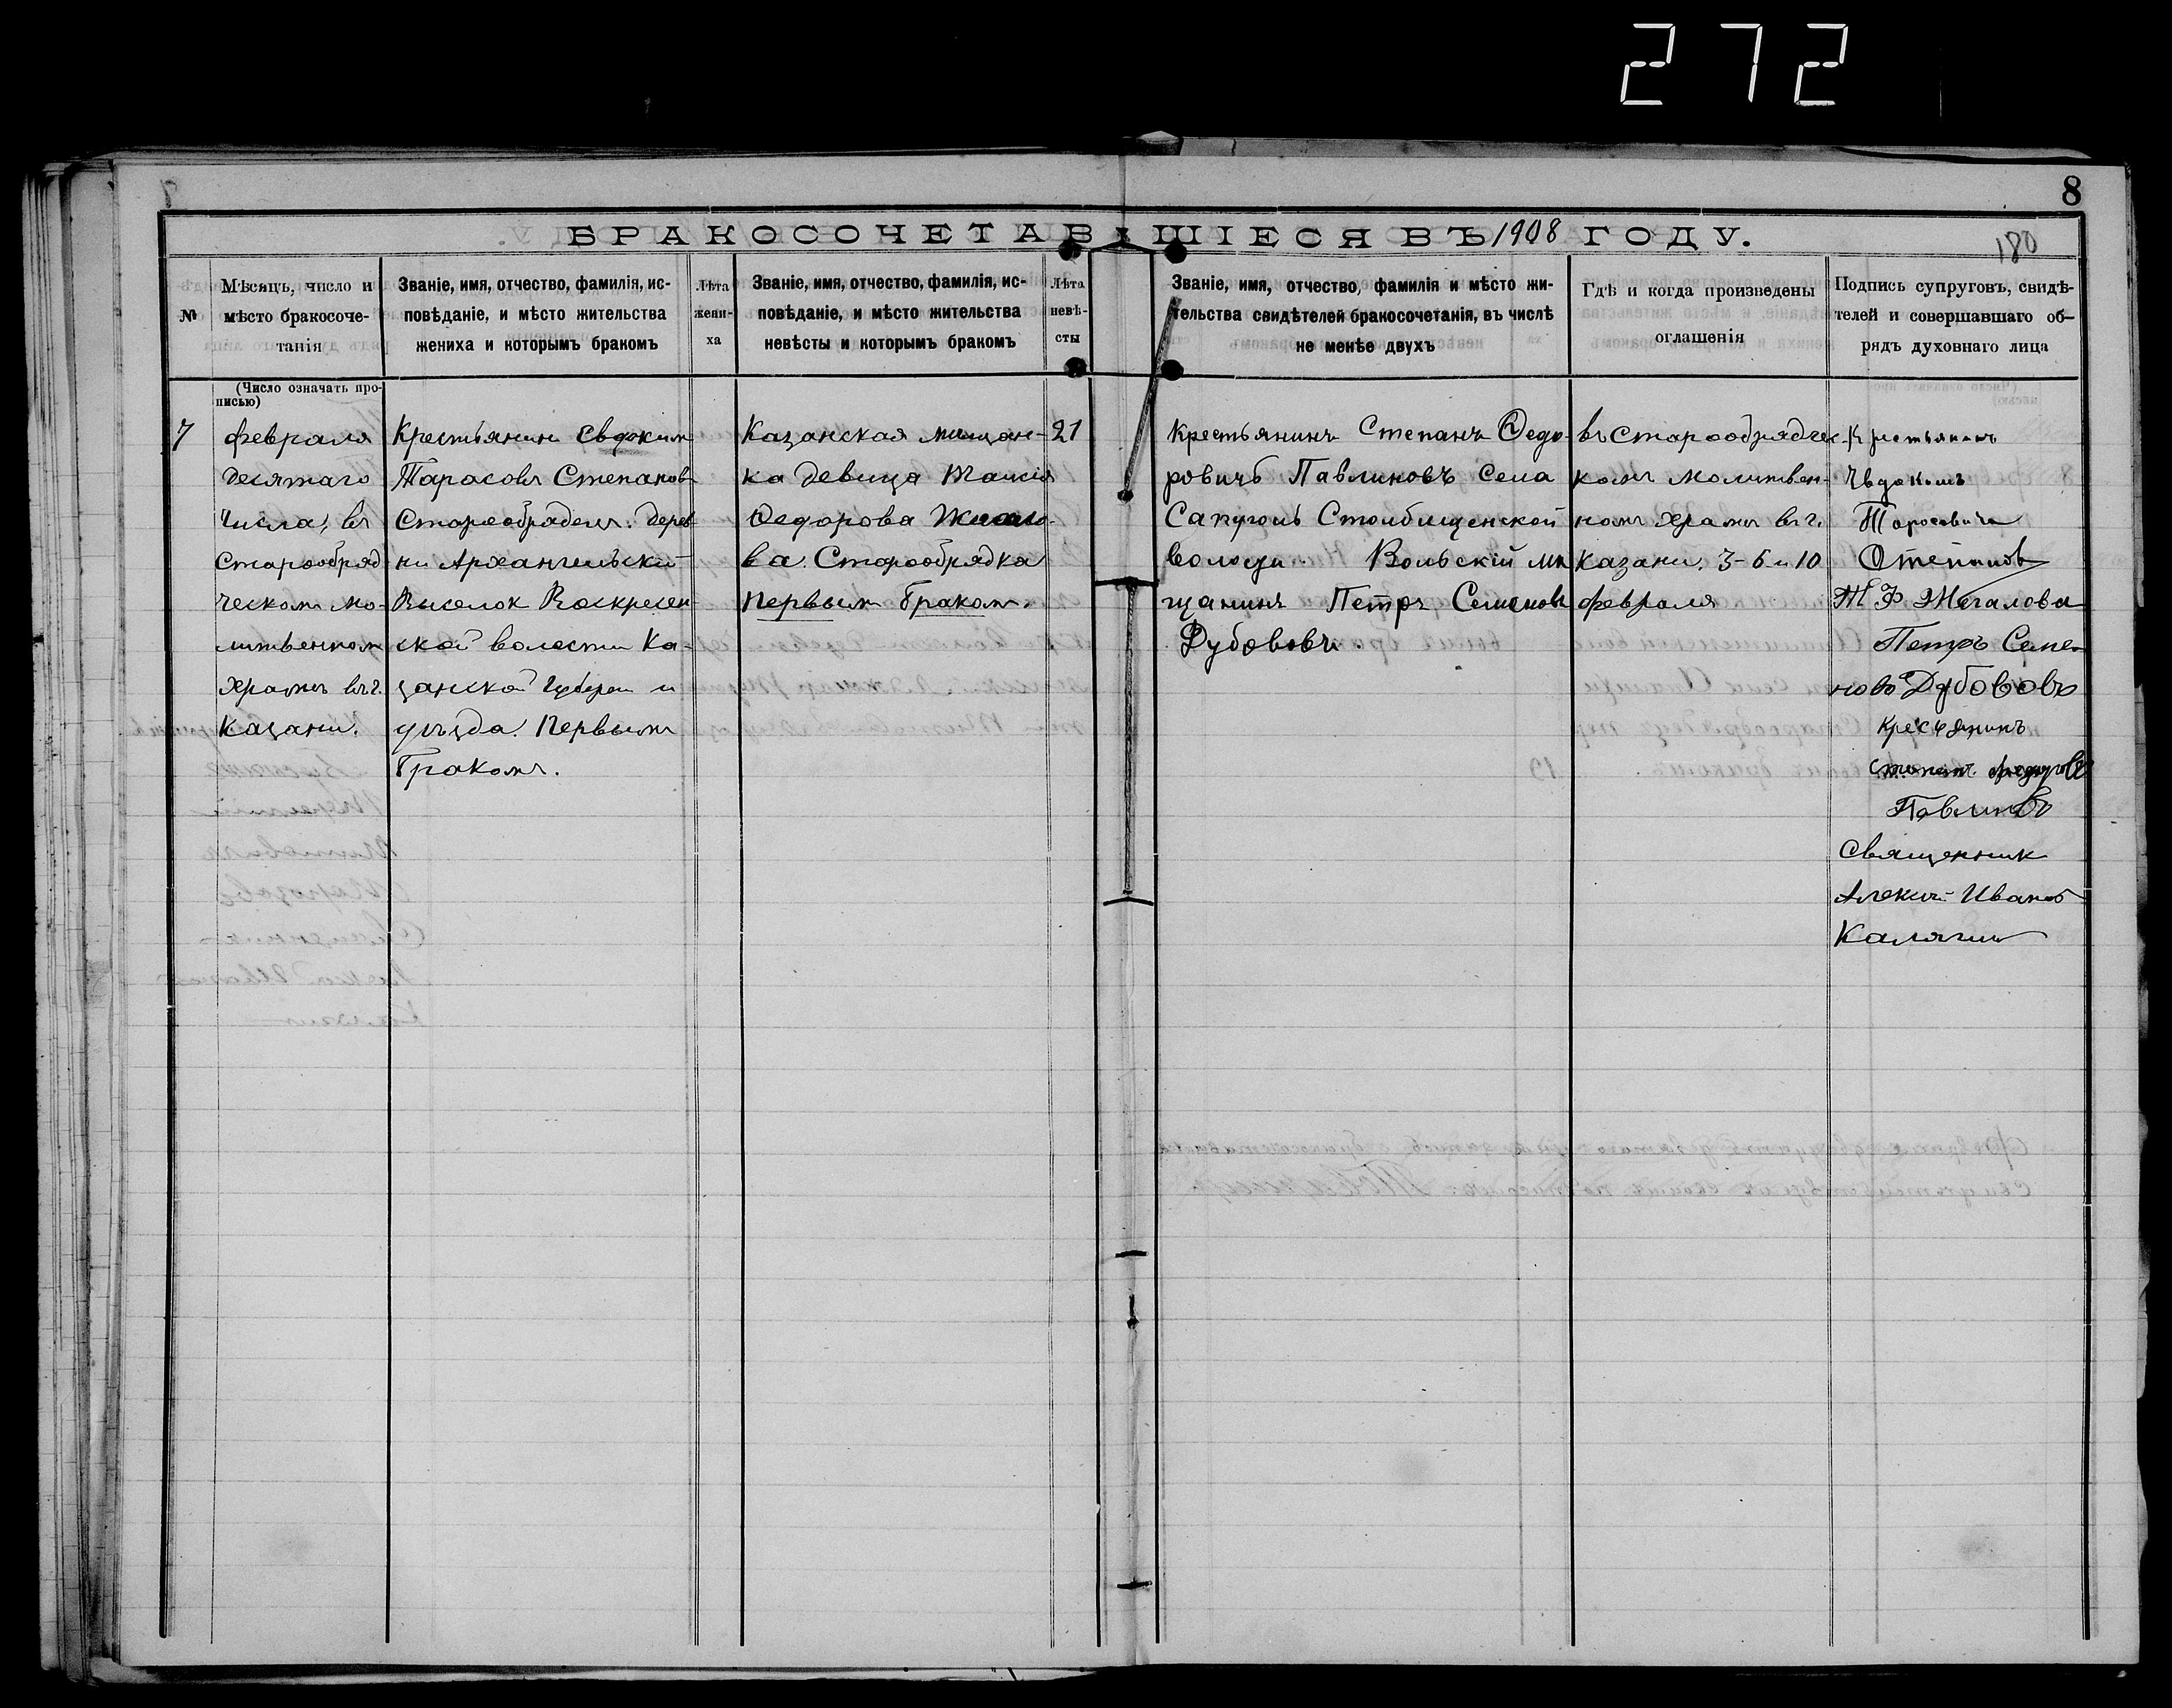 272
8
БРАКОСОЧЕТАВШІЕСЯ ВЪ 1908 ГОДУ.
180
№
Мѣсяцъ, число и
мѣсто бракосоче-
танія
Званіе, имя, отчество, фамилія, ис-
повѣданіе, и мѣсто жительства
жениха и которымъ бракомъ
Лѣта
жени-
ха
Званіе, имя, отчество, фамилія, ис-
повѣданіе, и мѣсто жительства
невѣсты и которымъ бракомъ
Лѣта
невѣ-
сты
Званіе, имя, отчество, фамилія и мѣсто жи-
тельства свидѣтелей бракосочетанія, въ числѣ
не менѣе двухъ
Гдѣ и когда произведены
оглашенія
Подпись супруговъ, свидѣ-
телей и совершавшаго об-
рядъ духовнаго лица
(Число означать про-
писью)
7
февраля
десятаго
Числа, въ
Старообряд
ческом мо-
литвенном
храмъ въ г.
Казани.
Крестьянинъ Евдоким
Тарасовъ Степанов
Старообрядецъ. дерев
ни Архангельской
Выселок Воскресен-
ской волости Ка-
занской Губерни и
уѣзда. Первымъ
Бракомъ.
Казанская мещан-
ка девица Таисія
Ѳедорова
ва. Старообрядка
первым браком.
21
Крестьянинъ Степанъ Ѳедо-
ровичъ Павлиновъ Села
Сапуголь Столбищенской
волости. Вольскій мѣ
щанинъ Петръ Семеновъ
Дубововъ.
въ Старообрядчес-
комъ молитвен-
номъ храмъ въ г.
Казани. 3-6 и 10
февраля
Крестьянинъ
Евдокимъ
Тарасовичъ
Степанов
Т Ф Жегалова
Петръ Семе-
новъ Дубововъ
кресьянинъ
степанъ федоровъ
Павлиновъ
Священник
Алексий Иванов
Калягин